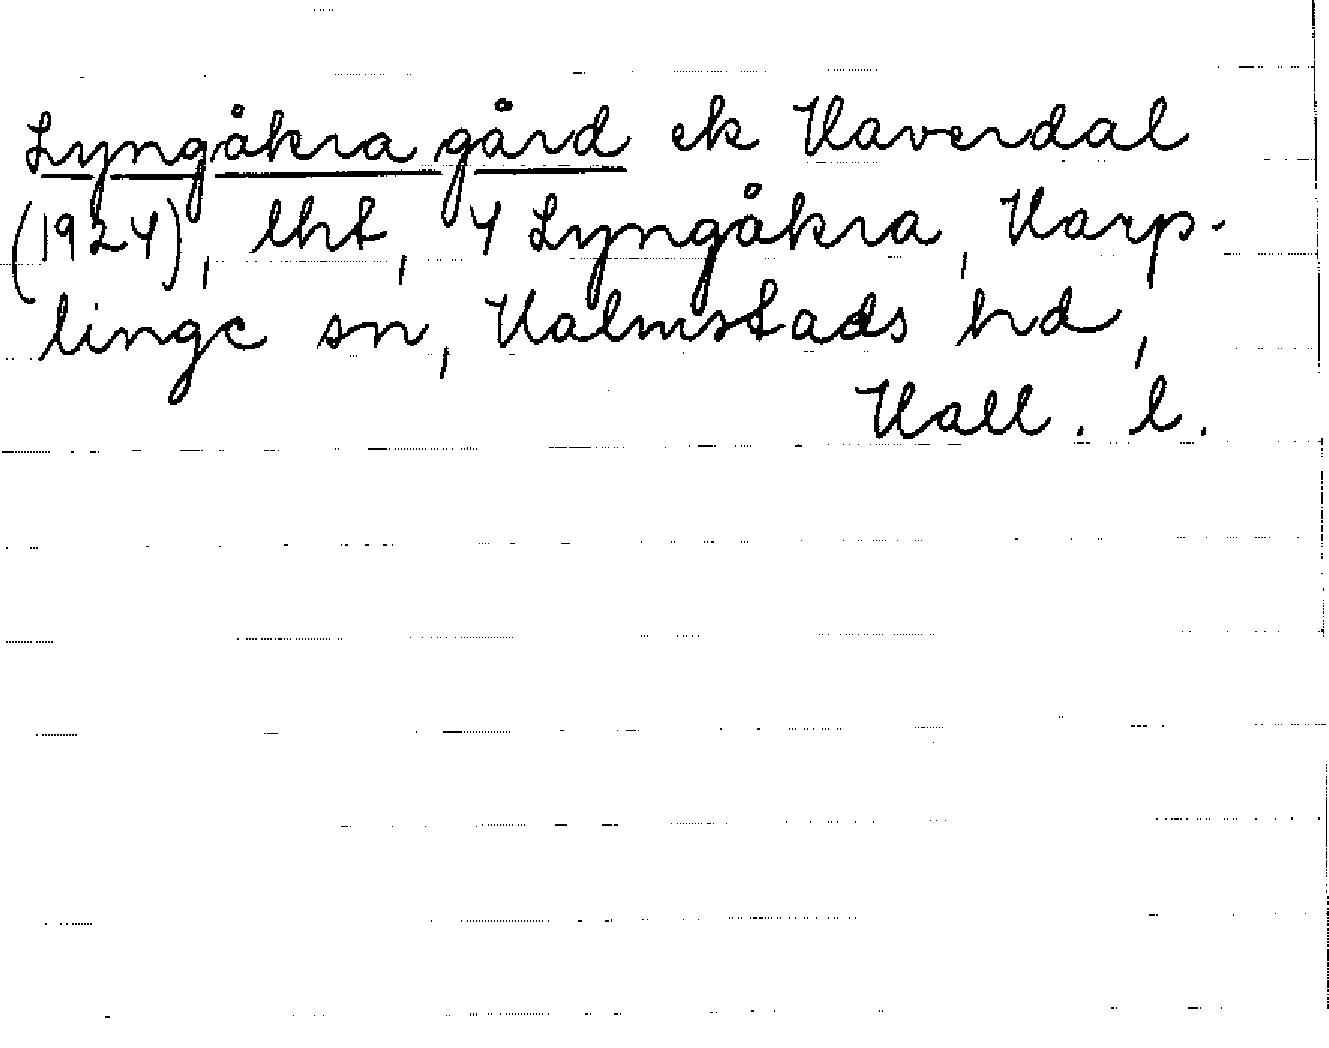 Lyngåkra gård ek Haverdal
(1924), lht, 4 Lyngåkra, Harp-
linge sn, Halmstads hd,
Hall. l.